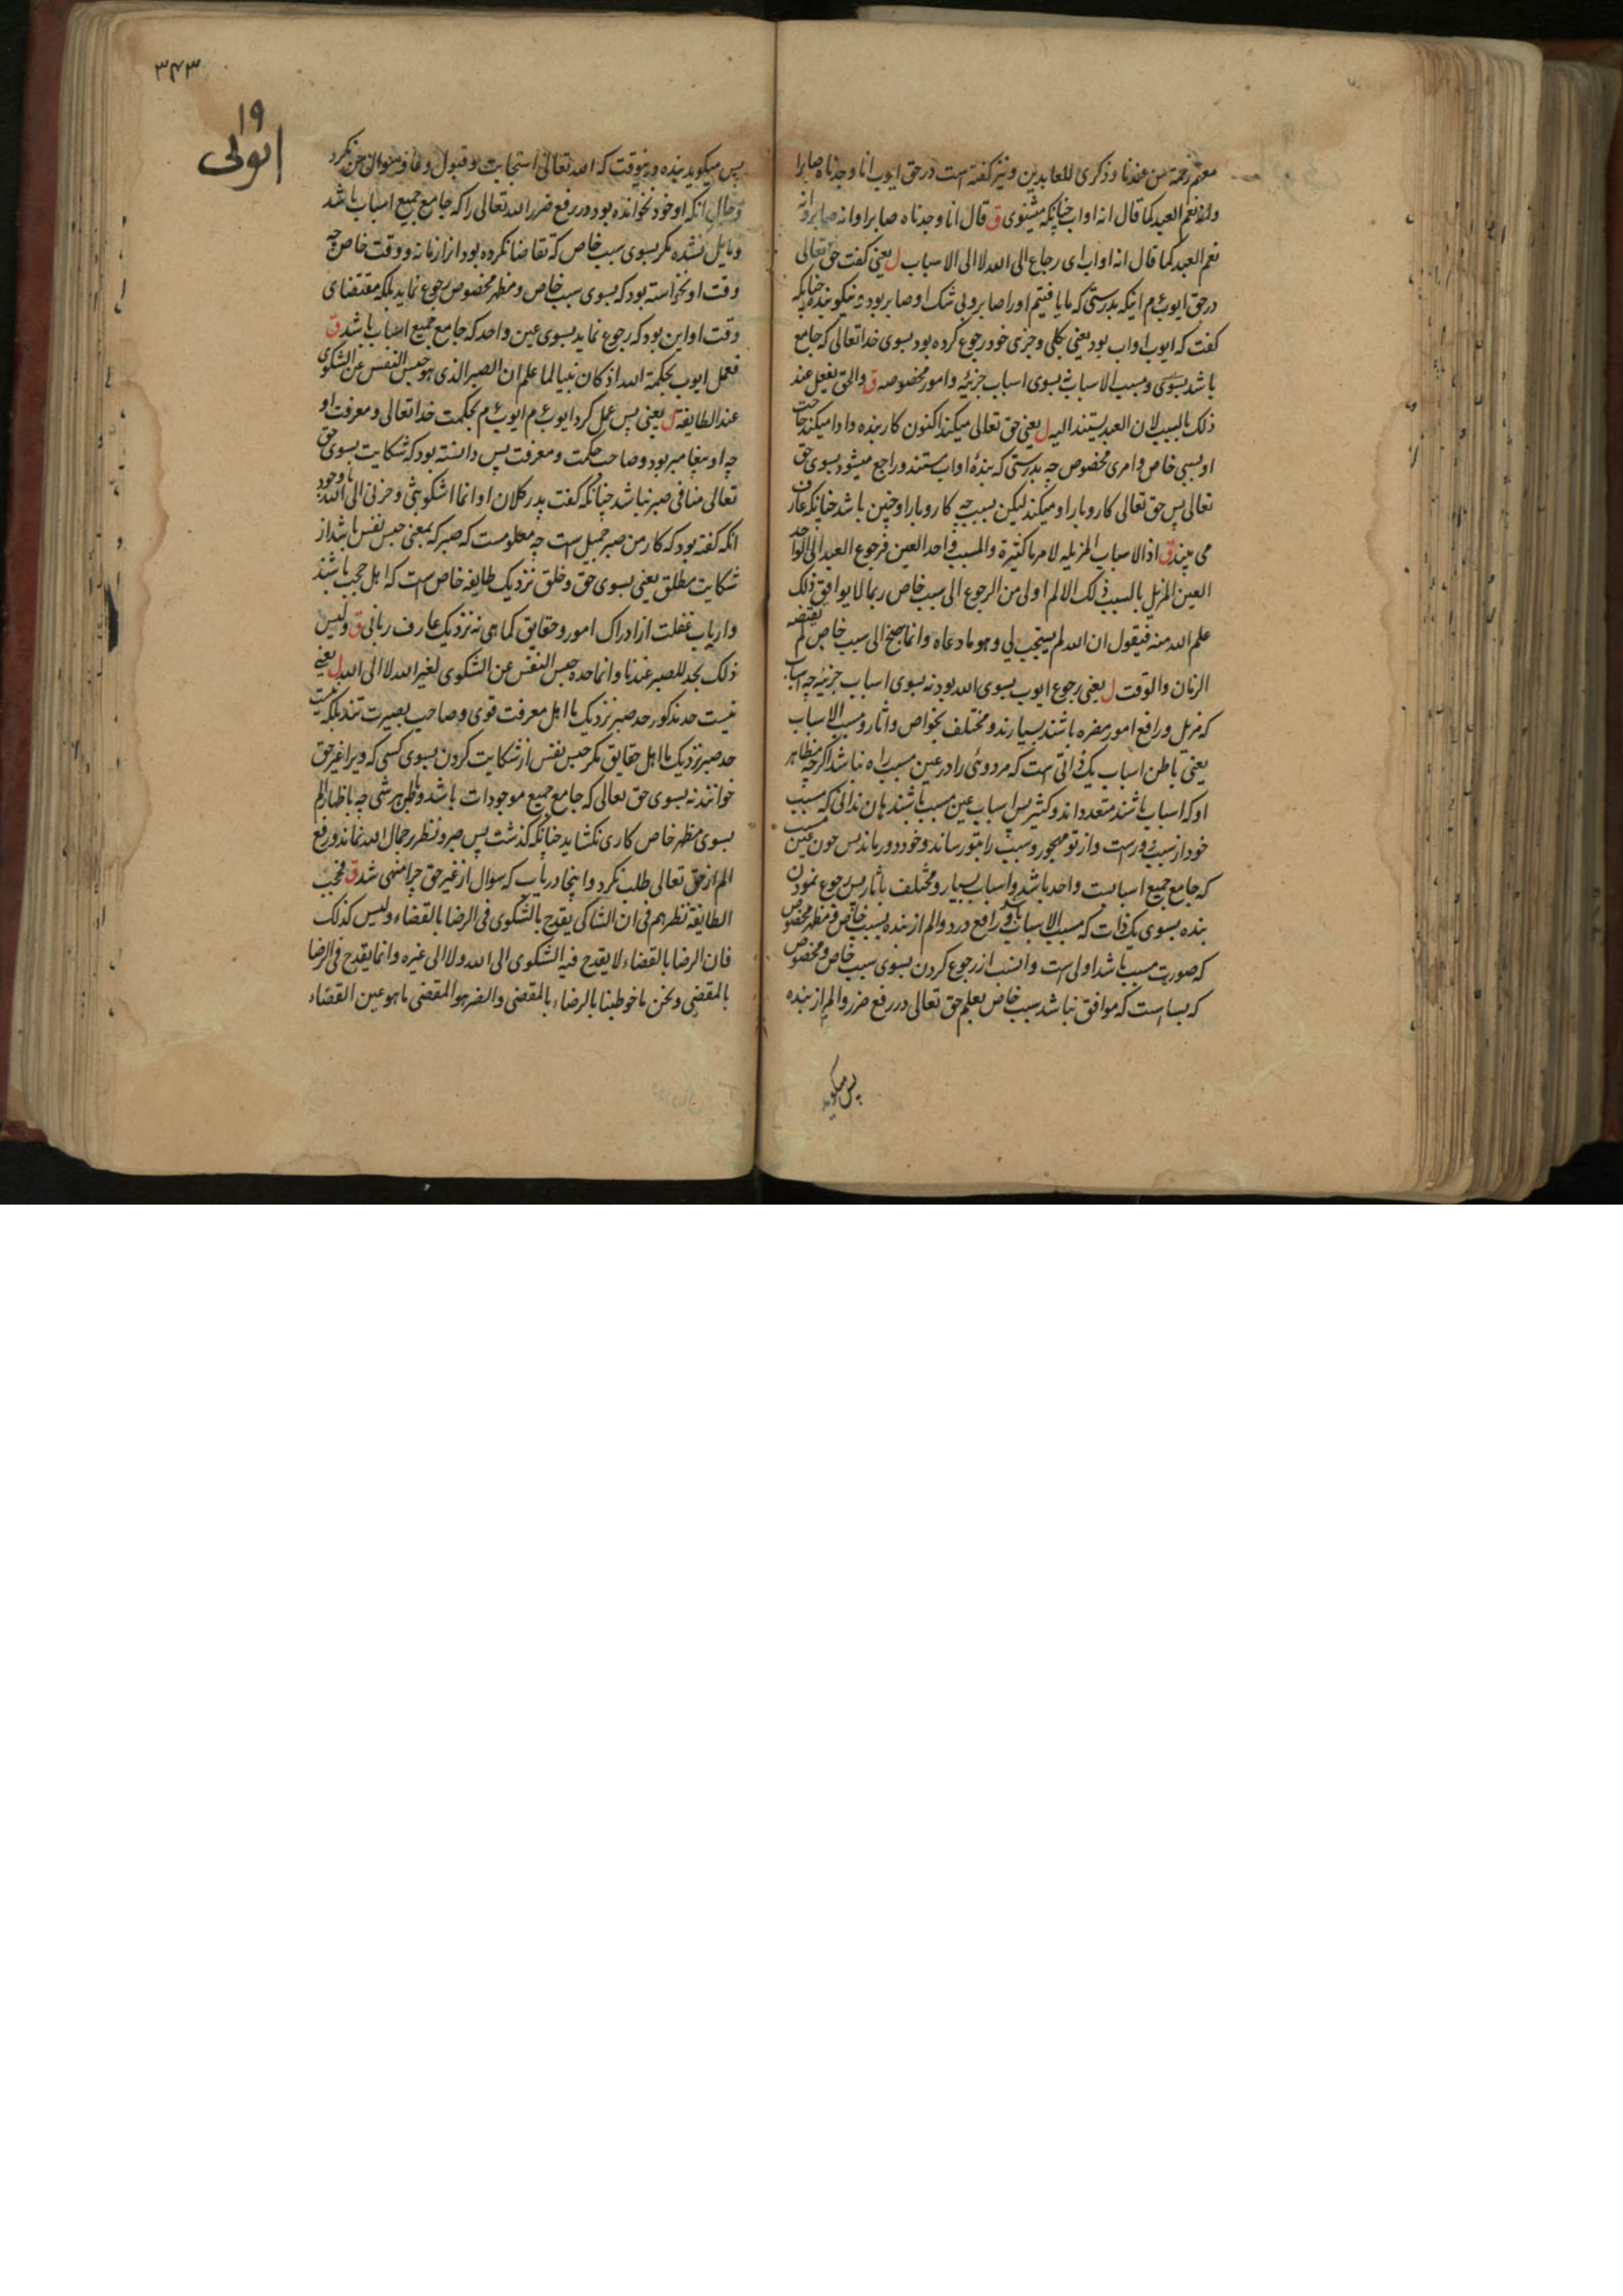 معهم رحمة من عندنا و ذکری للعابدین و نیز گفته است در حق ایوب انا وجدناه صابرا
نعم العبد کما قال انه اواب چنانکه میشنوی ق قال انا وجدناه صابرا وانه صابر وانه
نعم العبد کما قال انه اواب ای رجاع الی الله لا الی الاسباب ل یعنی گفت حق تعالی
در حق ایوب ع م اینکه بدرستی که ما یافتیم او را صابر و بی شک او صابر بود و نیکو بنده چنانکه
گفت که ایوب اواب بود یعنی بکلی و جزی خود رجوع کرده بود بسوی خدا تعالی که جامع
باشد بسوی و مسبب الاسباب بسوی اسباب جزئیه و امور مخصوصه ق والحق یفعل عند
ذلک بالسبب لان العبد یستند الیه ل یعنی حق تعالی میکند اکنون کار بنده و ادا میکند حاجت
او بسببی خاص و امری مخصوص چه بدرستی که بندهٔ اواب مستند و راجع میشود بسوی حق
تعالی پس حق تعالی کار و بار او میکند لیکن بسبب چه کار و بار او چنین باشد چنانکه عارف
می بیند ق اذ الاسباب المزیله لامر ما کثیرة والمسبب واحد العین فرجوع العبد الی الواحد
العین المزیل بالسبب ذلک الالم اولی من الرجوع الی سبب خاص ربما لا یوافق ذلک
علم الله منه فیقول ان الله لم یستجب لی و هو ما دعاه وانما جنح الی سبب خاص لم یقتضه
الزمان والوقت ل یعنی رجوع ایوب بسوی الله بود نه بسوی اسباب جزئیه چه اسباب
که مزیل و رافع امور مضره باشند بسیارند و مختلف بخواص و اثار و مسبب الاسباب
یعنی باطن اسباب یک ذاتی است که مر دوئی را در عین مسبب راه نباشد اگرچه مظاهر
او که اسباب باشند متعدداند و کثیر پس اسباب عین مسبب باشند هان ندانی که مسبب
خود از سبب دورست و از تو مهجور و سبب را بتو رساند و خود دور ماند پس چون عین مسبب
که جامع جمیع اسبابست واحد باشد و اسباب بسیار و مختلف باثار پس رجوع نمودن
بنده بسوی یک ذات که مسبب الاسباب باشد و رافع درد و الم از بنده بسبب خاص و مظهر مخصوص
که صورت مسبب باشد اولی است و انسب از رجوع کردن بسوی سبب خاص و مخصوص
که بسا است که موافق نباشد سبب خاص بعلم حق تعالی در رفع ضرر و الم از بنده
پس میگوید
۳۴۳
۱۹
ایوبی
پس میگوید بنده درینوقت که الله تعالی استجابت و قبول دعا و سوال من نکرد
و حال انکه او خود نخوانده بود در رفع ضرر الله تعالی را که جامع جمیع اسباب باشد
و مایل نشده مگر بسوی سبب خاص که تقاضا نکرده بود انرا زمانه و وقت خاص چه
وقت او نخواسته بود که بسوی سبب خاص و مظهر مخصوص رجوع نماید بلکه مقتضای
وقت او این بود که رجوع نماید بسوی عین واحد که جامع جمیع اسباب باشد ق
فعمل ایوب بحکمة الله اذ کان نبیا لما علم ان الصبر الذی هو حبس النفس عن الشکوی
عند الطایفة ل یعنی پس عمل کرد ایوب ع م ایوب ع م بحکمت خدا تعالی و معرفت او
چه او پیغامبر بود و صاحب حکمت و معرفت پس دانسته بود که شکایت بسوی حق
تعالی منافی صبر نباشد چنانکه گفت پدر کلان او انما اشکو بثی و حزنی الی الله با وجود
انکه گفته بود که کار من صبر جمیل است چه معلومست که صبر که بمعنی حبس نفس باشد از
شکایت مطلق یعنی بسوی حق و خلق نزدیک طایفه خاص است که اهل حجب باشند
و ارباب غفلت از ادراک امور و حقایق کما هی نه نزدیک عارف ربانی ق ولیس
ذلک بحد للصبر عندنا وانما حده حبس النفس عن الشکوی لغیر الله لا الی الله ل یعنی
نیست حد مذکور حد صبر نزدیک ما اهل معرفت قوی و صاحب بصیرت تند بلکه نیست
حد صبر نزدیک ما اهل حقایق مگر حبس نفس از شکایت کردن بسوی کسی که ویرا غیر حق
خوانند نه بسوی حق تعالی که جامع جمیع موجودات باشد و ظاهر بهر شی چه باظهار الم
بسوی مظهر خاص کاری نکشاید چنانکه گذشت پس صبر و نظر بر جمال الله نماند و رفع
الم از حق تعالی طلب نکرد و اینجا دریاب که سوال از غیر حق چرا منهی شد ق فحجب
الطایفة نظرهم فی ان الشاکی یقدح بالشکوی فی الرضا بالقضاء ولیس کذلک
فان الرضا بالقضاء لا یقدح فیه الشکوی الی الله ولا الی غیره وانما یقدح فی الرضا
بالمقضی و نحن ما خوطبنا بالرضاء بالمقضی والضر هو المقضی ما هو عین القضاء